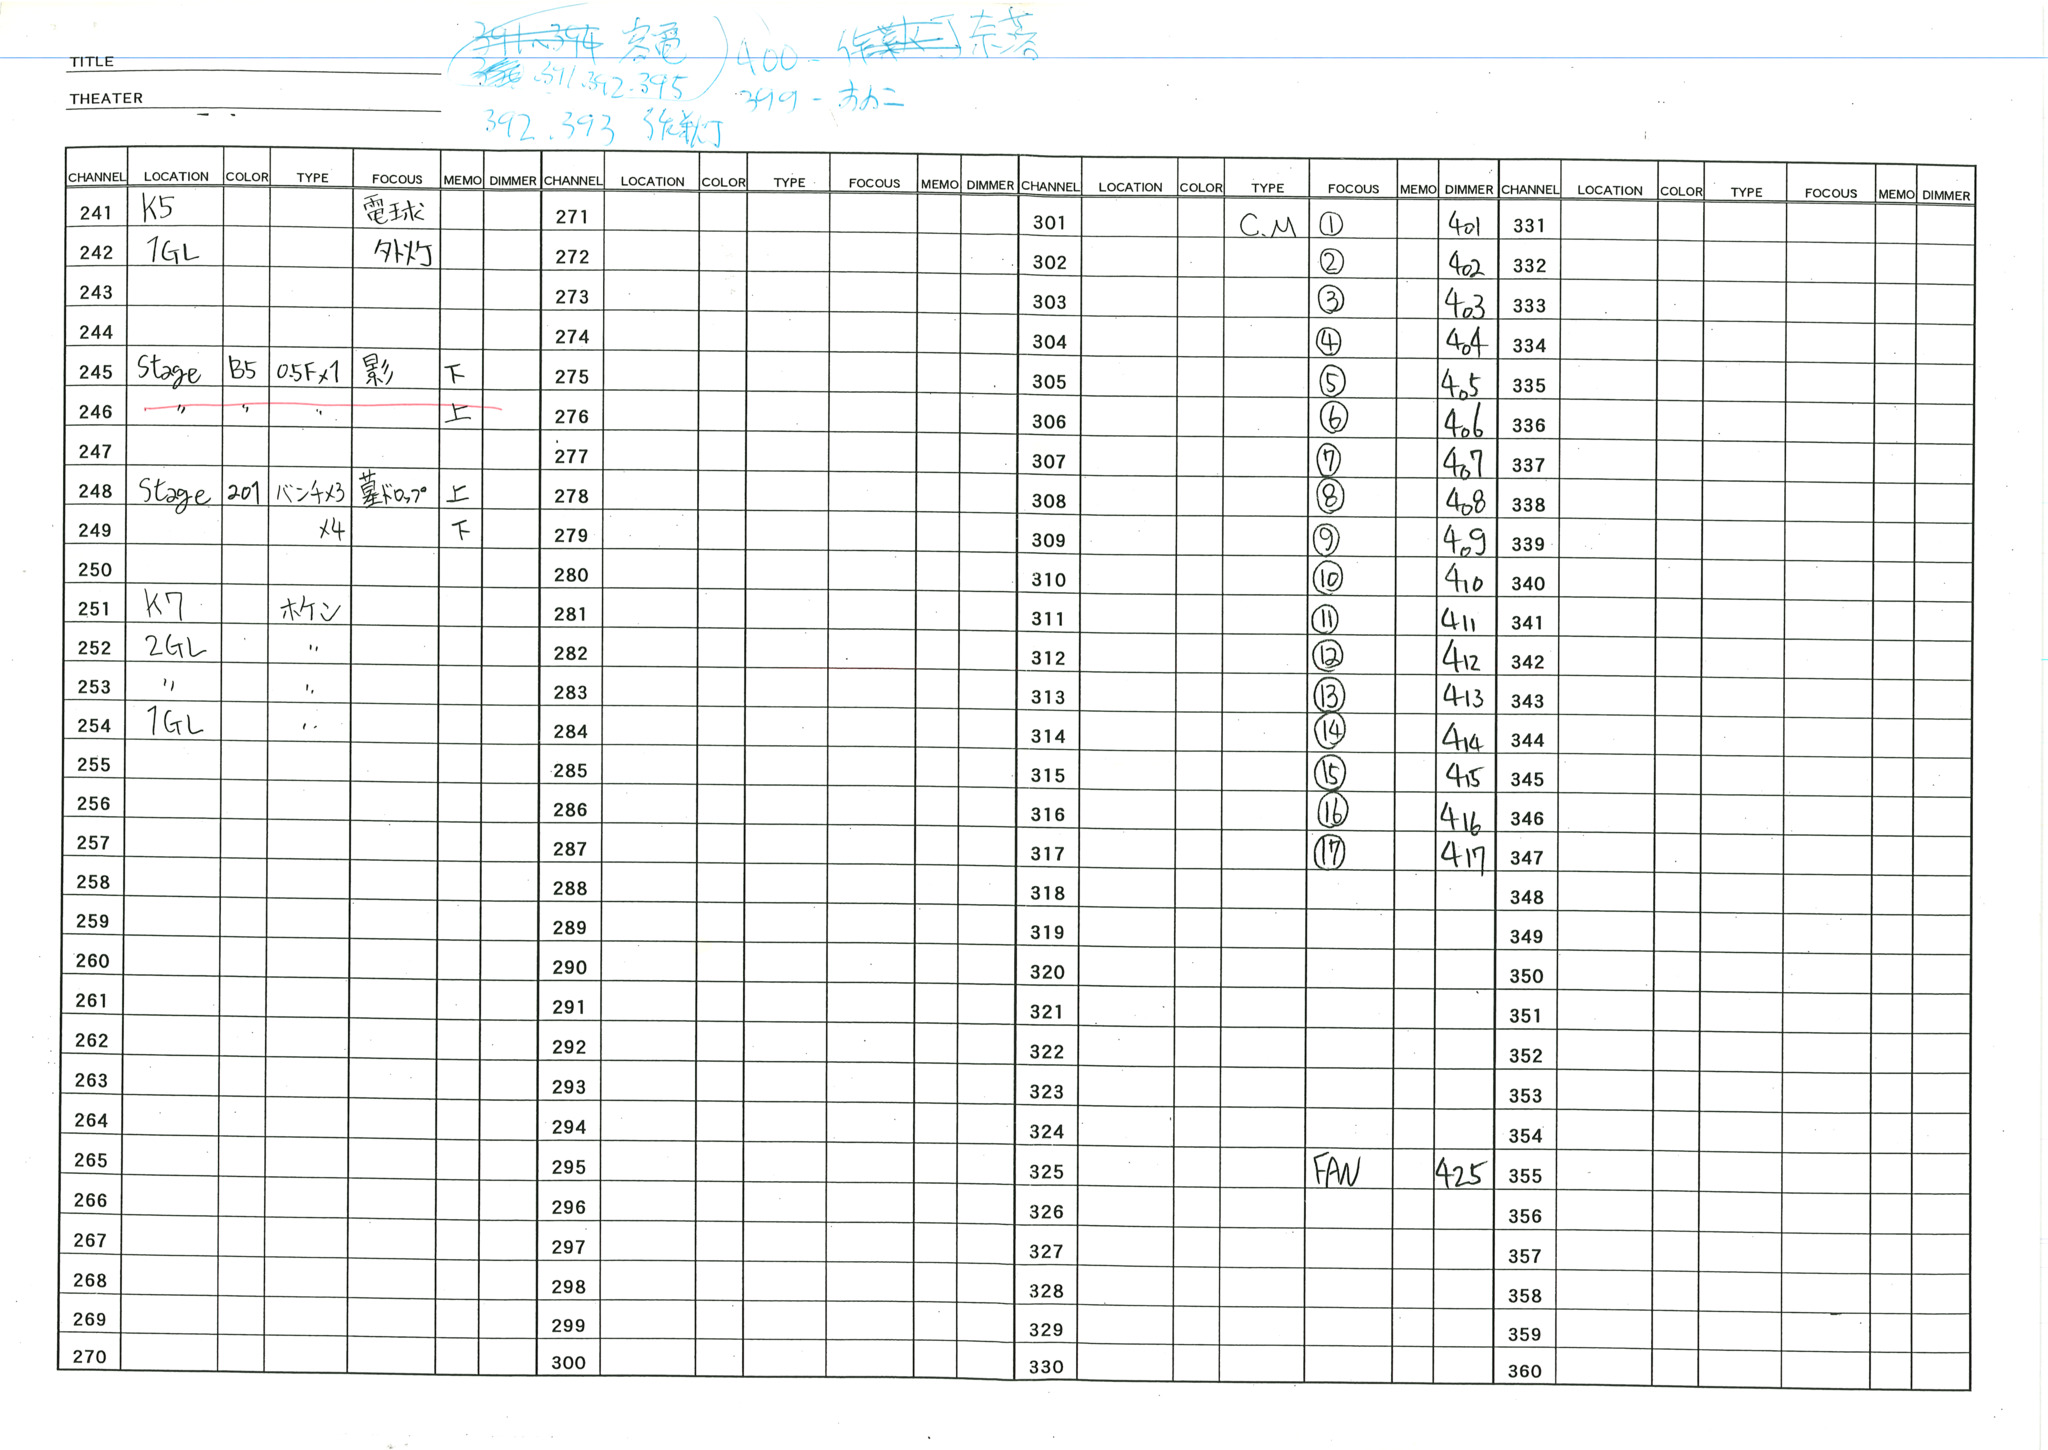 391.394 客電
391.392.395
392.393 作業灯
400 - 作業灯
399 -
TITLE
THEATER
CHANNEL LOCATION COLOR TYPE FOCOUS MEMO DIMMER CHANNEL LOCATION COLOR TYPE FOCOUS MEMO DIMMER CHANNEL LOCATION COLOR TYPE FOCOUS MEMO DIMMER CHANNEL LOCATION COLOR TYPE FOCOUS MEMO DIMMER
241 K5 電球 271 301 C.M ① 401 331
242 1GL 外灯 272 302 ② 402 332
243 273 303 ③ 403 333
244 274 304 ④ 404 334
245 Stage B5 0.5F×1 影 下 275 305 ⑤ 405 335
246 〃 〃 〃 上 276 306 ⑥ 406 336
247 277 307 ⑦ 407 337
248 Stage 201 バンチ×3 墓ドロップ 上 278 308 ⑧ 408 338
249 ×4 下 279 309 ⑨ 409 339
250 280 310 ⑩ 410 340
251 K7 ホケン 281 311 ⑪ 411 341
252 2GL 〃 282 312 ⑫ 412 342
253 〃 〃 283 313 ⑬ 413 343
254 1GL 〃 284 314 ⑭ 414 344
255 285 315 ⑮ 415 345
256 286 316 ⑯ 416 346
257 287 317 ⑰ 417 347
258 288 318 348
259 289 319 349
260 290 320 350
261 291 321 351
262 292 322 352
263 293 323 353
264 294 324 354
265 295 325 FAN 425 355
266 296 326 356
267 297 327 357
268 298 328 358
269 299 329 359
270 300 330 360